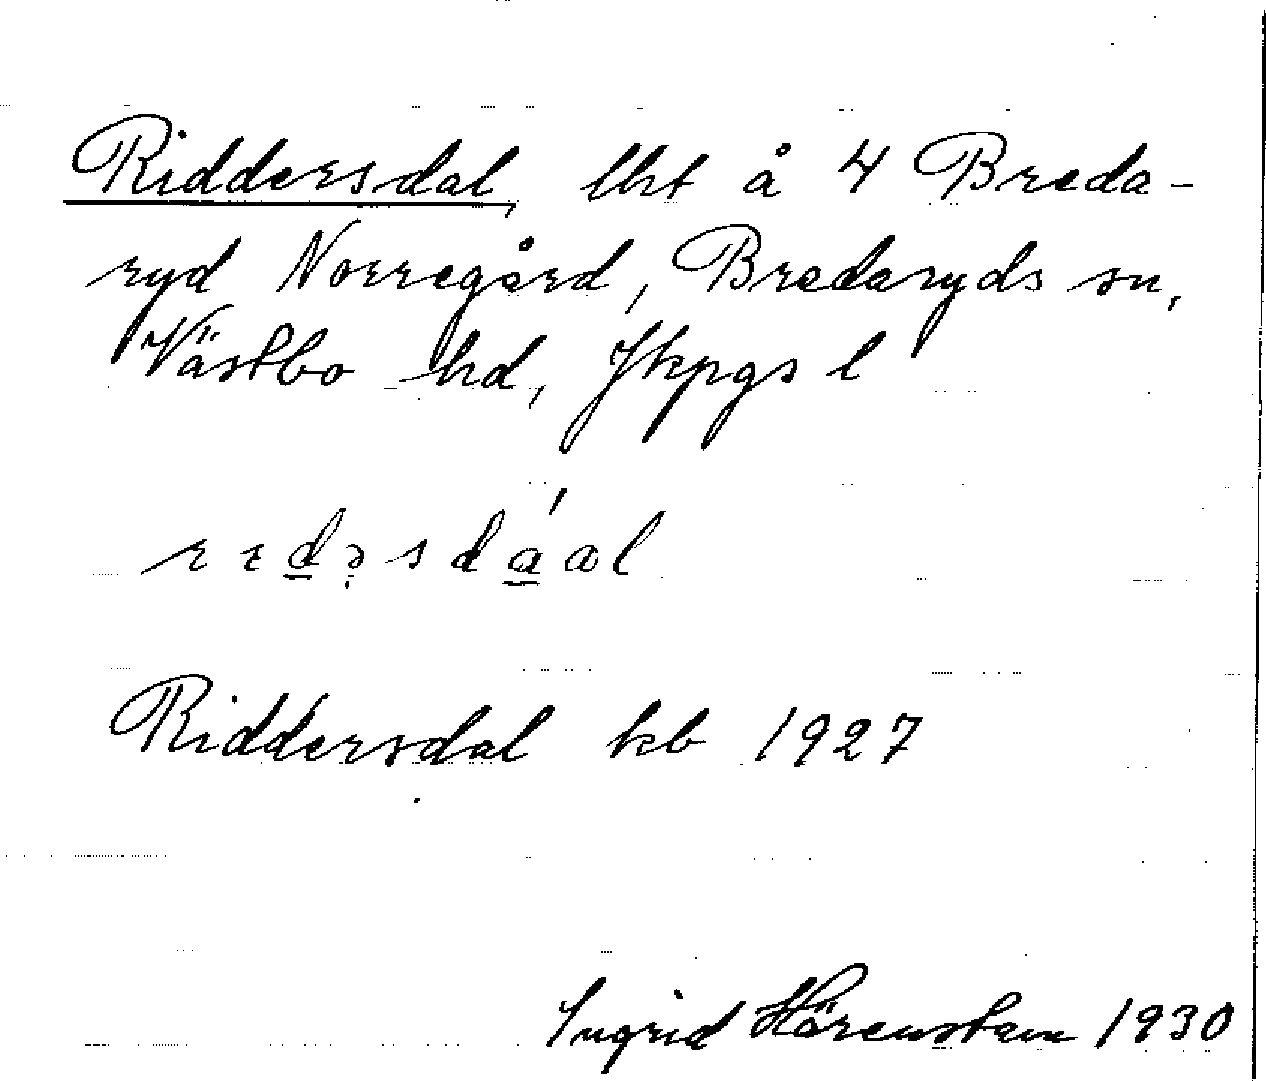 Riddersdal, lht å 4 Breda-
ryd Norregård, Bredaryds sn,
Västbo hd, Jkpgs l
rɪd̲ə̣sdá̲al
Riddersdal kb 1927
Ingrid Hörenstam 1930